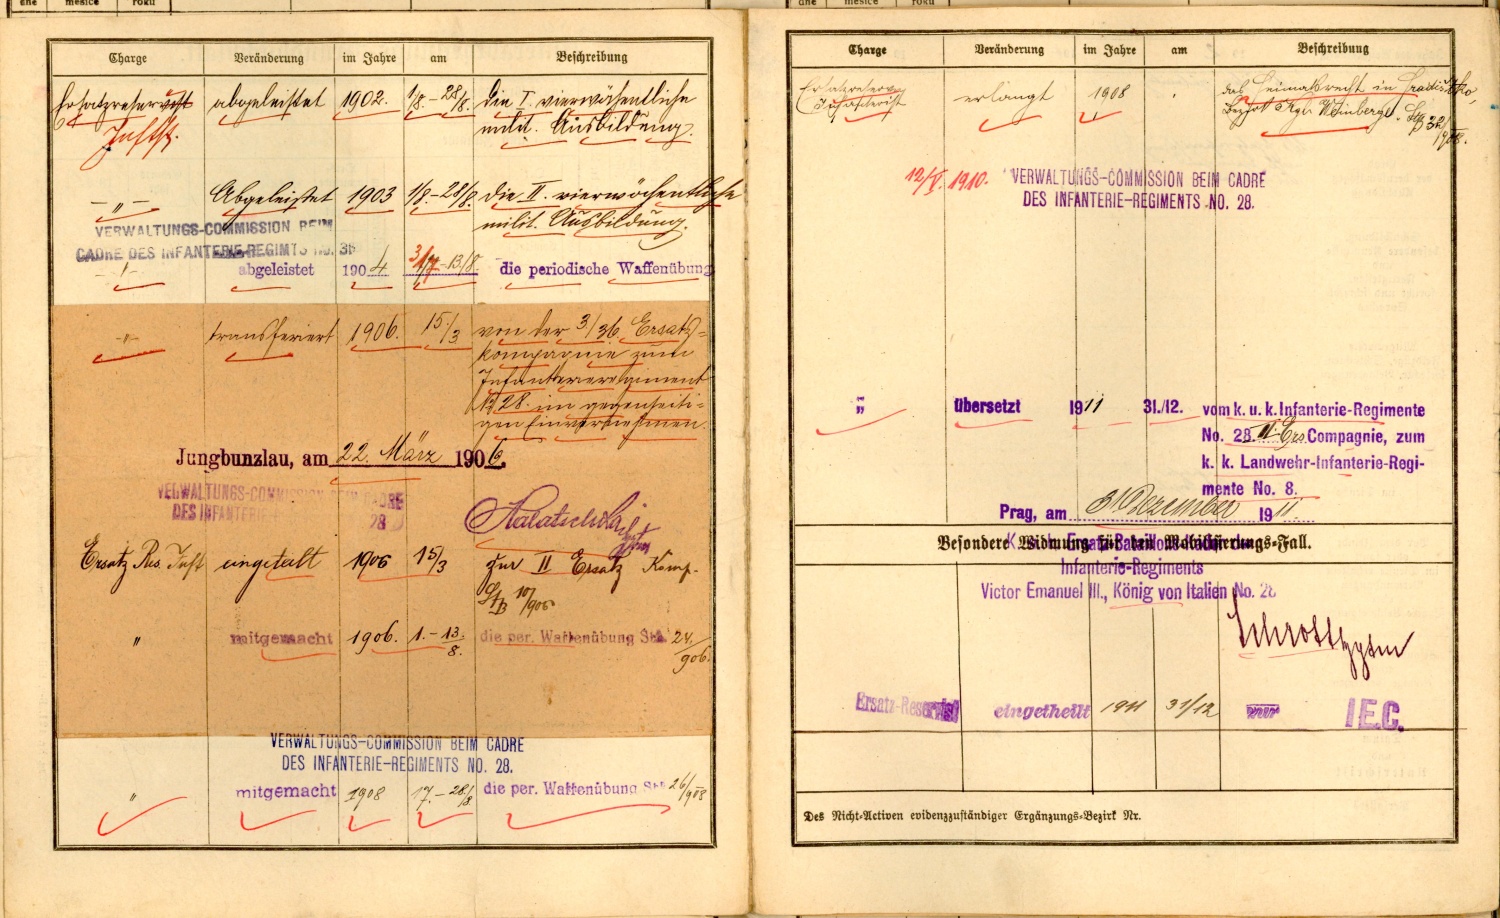 dne měsíce roku
Charge Veränderung im Jahre am Beschreibung
Ersatzreservist abgeleistet 1902. 1/8.-28/8. die I. vierwöchentliche
Inftst. milit. Ausbildung.
-"- Abgeleistet 1903 1/8.-28/8. die II. vierwöchentliche
milit. Ausbildung.
VERWALTUNGS-COMMISSION BEIM
CADRE DES INFANTERIE-REGIMTS No. 36
abgeleistet 1904 -13/8. die periodische Waffenübung
-"- transferiert 1906. 15./3 von der 3/36. Ersatz-
kompagnie zum
Infanterieregiment
No 28. im gegenseiti-
gen Einvernehmen.
Jungbunzlau, am 22. März 1906.
VERWALTUNGS-COMMISSION BEIM CADRE
DES INFANTERIE- 28
Ersatz Res. Inft eingeteilt 1906 15/3 zur II Ersatz Komp.
10/906
" mitgemacht 1906. 1.-13./8. die per. Waffenübung 24/906.
VERWALTUNGS-COMMISSION BEIM CADRE
DES INFANTERIE-REGIMENTS NO. 28.
" mitgemacht 1908 17.-28./8. die per. Waffenübung 26/908
dne měsíce roku
Charge Veränderung im Jahre am Beschreibung
Ersatzreserve erlangt 1908 das Heimatsrecht in Hradištko,
Infanterist Bezirk Kgl. Weinberge. 32/908.
12/V. 1910. VERWALTUNGS-COMMISSION BEIM CADRE
DES INFANTERIE-REGIMENTS NO. 28.
" übersetzt 1911 31./12. vom k. u. k. Infanterie-Regimente
No. 28 II. Ers. Compagnie, zum
k. k. Landwehr-Infanterie-Regi-
mente No. 8.
Prag, am 31 Dezember 1911.
Besondere Widmung für den Mobilisierungs-Fall.
Infanterie-Regiments
Victor Emanuel III., König von Italien No. 28
Schrott
Ersatz-Reservist eingetheilt 1911 31/12 zur I E.C.
Des Nicht-Activen evidenzzuständiger Ergänzungs-Bezirk Nr.